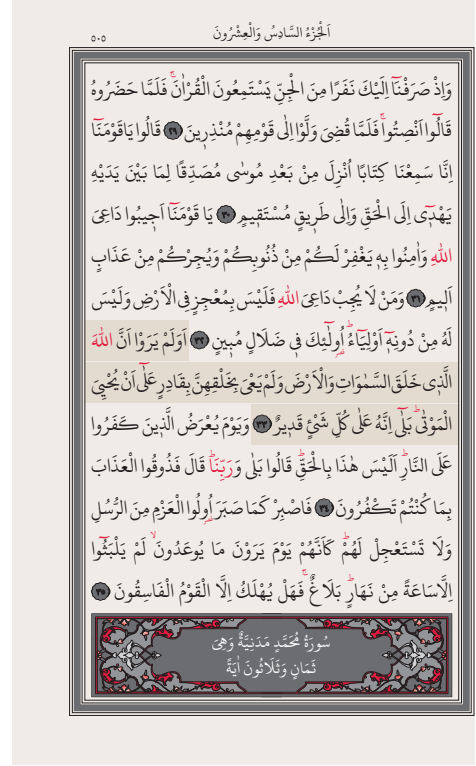 اَلْجُزْءُ السَّادِسُ وَالْعِشْرُونَ
٥٠٥
وَاِذْ صَرَفْنَٓا اِلَيْكَ نَفَرًا مِنَ الْجِنِّ يَسْتَمِعُونَ الْقُرْاٰنَۚ فَلَمَّا حَضَرُوهُ
قَالُٓوا اَنْصِتُواۚ فَلَمَّا قُضِىَ وَلَّوْا اِلٰى قَوْمِهِمْ مُنْذِرِينَ ﴿٢٩﴾ قَالُوا يَاقَوْمَنَٓا
اِنَّا سَمِعْنَا كِتَابًا اُنْزِلَ مِنْ بَعْدِ مُوسٰى مُصَدِّقًا لِمَا بَيْنَ يَدَيْهِ
يَهْدِٓى اِلَى الْحَقِّ وَاِلٰى طَرِيقٍ مُسْتَقِيمٍ ﴿٣٠﴾ يَا قَوْمَنَٓا اَجِيبُوا دَاعِىَ
اللّٰهِ وَاٰمِنُوا بِهٖ يَغْفِرْ لَكُمْ مِنْ ذُنُوبِكُمْ وَيُجِرْكُمْ مِنْ عَذَابٍ
اَلِيمٍ ﴿٣١﴾ وَمَنْ لَا يُجِبْ دَاعِىَ اللّٰهِ فَلَيْسَ بِمُعْجِزٍ فِى الْاَرْضِ وَلَيْسَ
لَهُ مِنْ دُونِهٖٓ اَوْلِيَٓاءُۜ اُو۬لٰٓئِكَ فِى ضَلَالٍ مُبِينٍ ﴿٣٢﴾ اَوَلَمْ يَرَوْا اَنَّ اللّٰهَ
الَّذِى خَلَقَ السَّمٰوَاتِ وَالْاَرْضَ وَلَمْ يَعْىَ بِخَلْقِهِنَّ بِقَادِرٍ عَلٰٓى اَنْ يُحْيِىَ
الْمَوْتٰىۜ بَلٰٓى اِنَّهُ عَلٰى كُلِّ شَىْءٍ قَدِيرٌ ﴿٣٣﴾ وَيَوْمَ يُعْرَضُ الَّذِينَ كَفَرُوا
عَلَى النَّارِۜ اَلَيْسَ هٰذَا بِالْحَقِّۜ قَالُوا بَلٰى وَرَبِّنَاۜ قَالَ فَذُوقُوا الْعَذَابَ
بِمَا كُنْتُمْ تَكْفُرُونَ ﴿٣٤﴾ فَاصْبِرْ كَمَا صَبَرَ اُو۬لُوا الْعَزْمِ مِنَ الرُّسُلِ
وَلَا تَسْتَعْجِلْ لَهُمْۜ كَاَنَّهُمْ يَوْمَ يَرَوْنَ مَا يُوعَدُونَۙ لَمْ يَلْبَثُٓوا
اِلَّا سَاعَةً مِنْ نَهَارٍۜ بَلَاغٌۚ فَهَلْ يُهْلَكُ اِلَّا الْقَوْمُ الْفَاسِقُونَ ﴿٣٥﴾
سُورَةُ مُحَمَّدٍ مَدَنِيَّةٌ وَهِىَ
ثَمَانٍ وَثَلَاثُونَ اٰيَةً